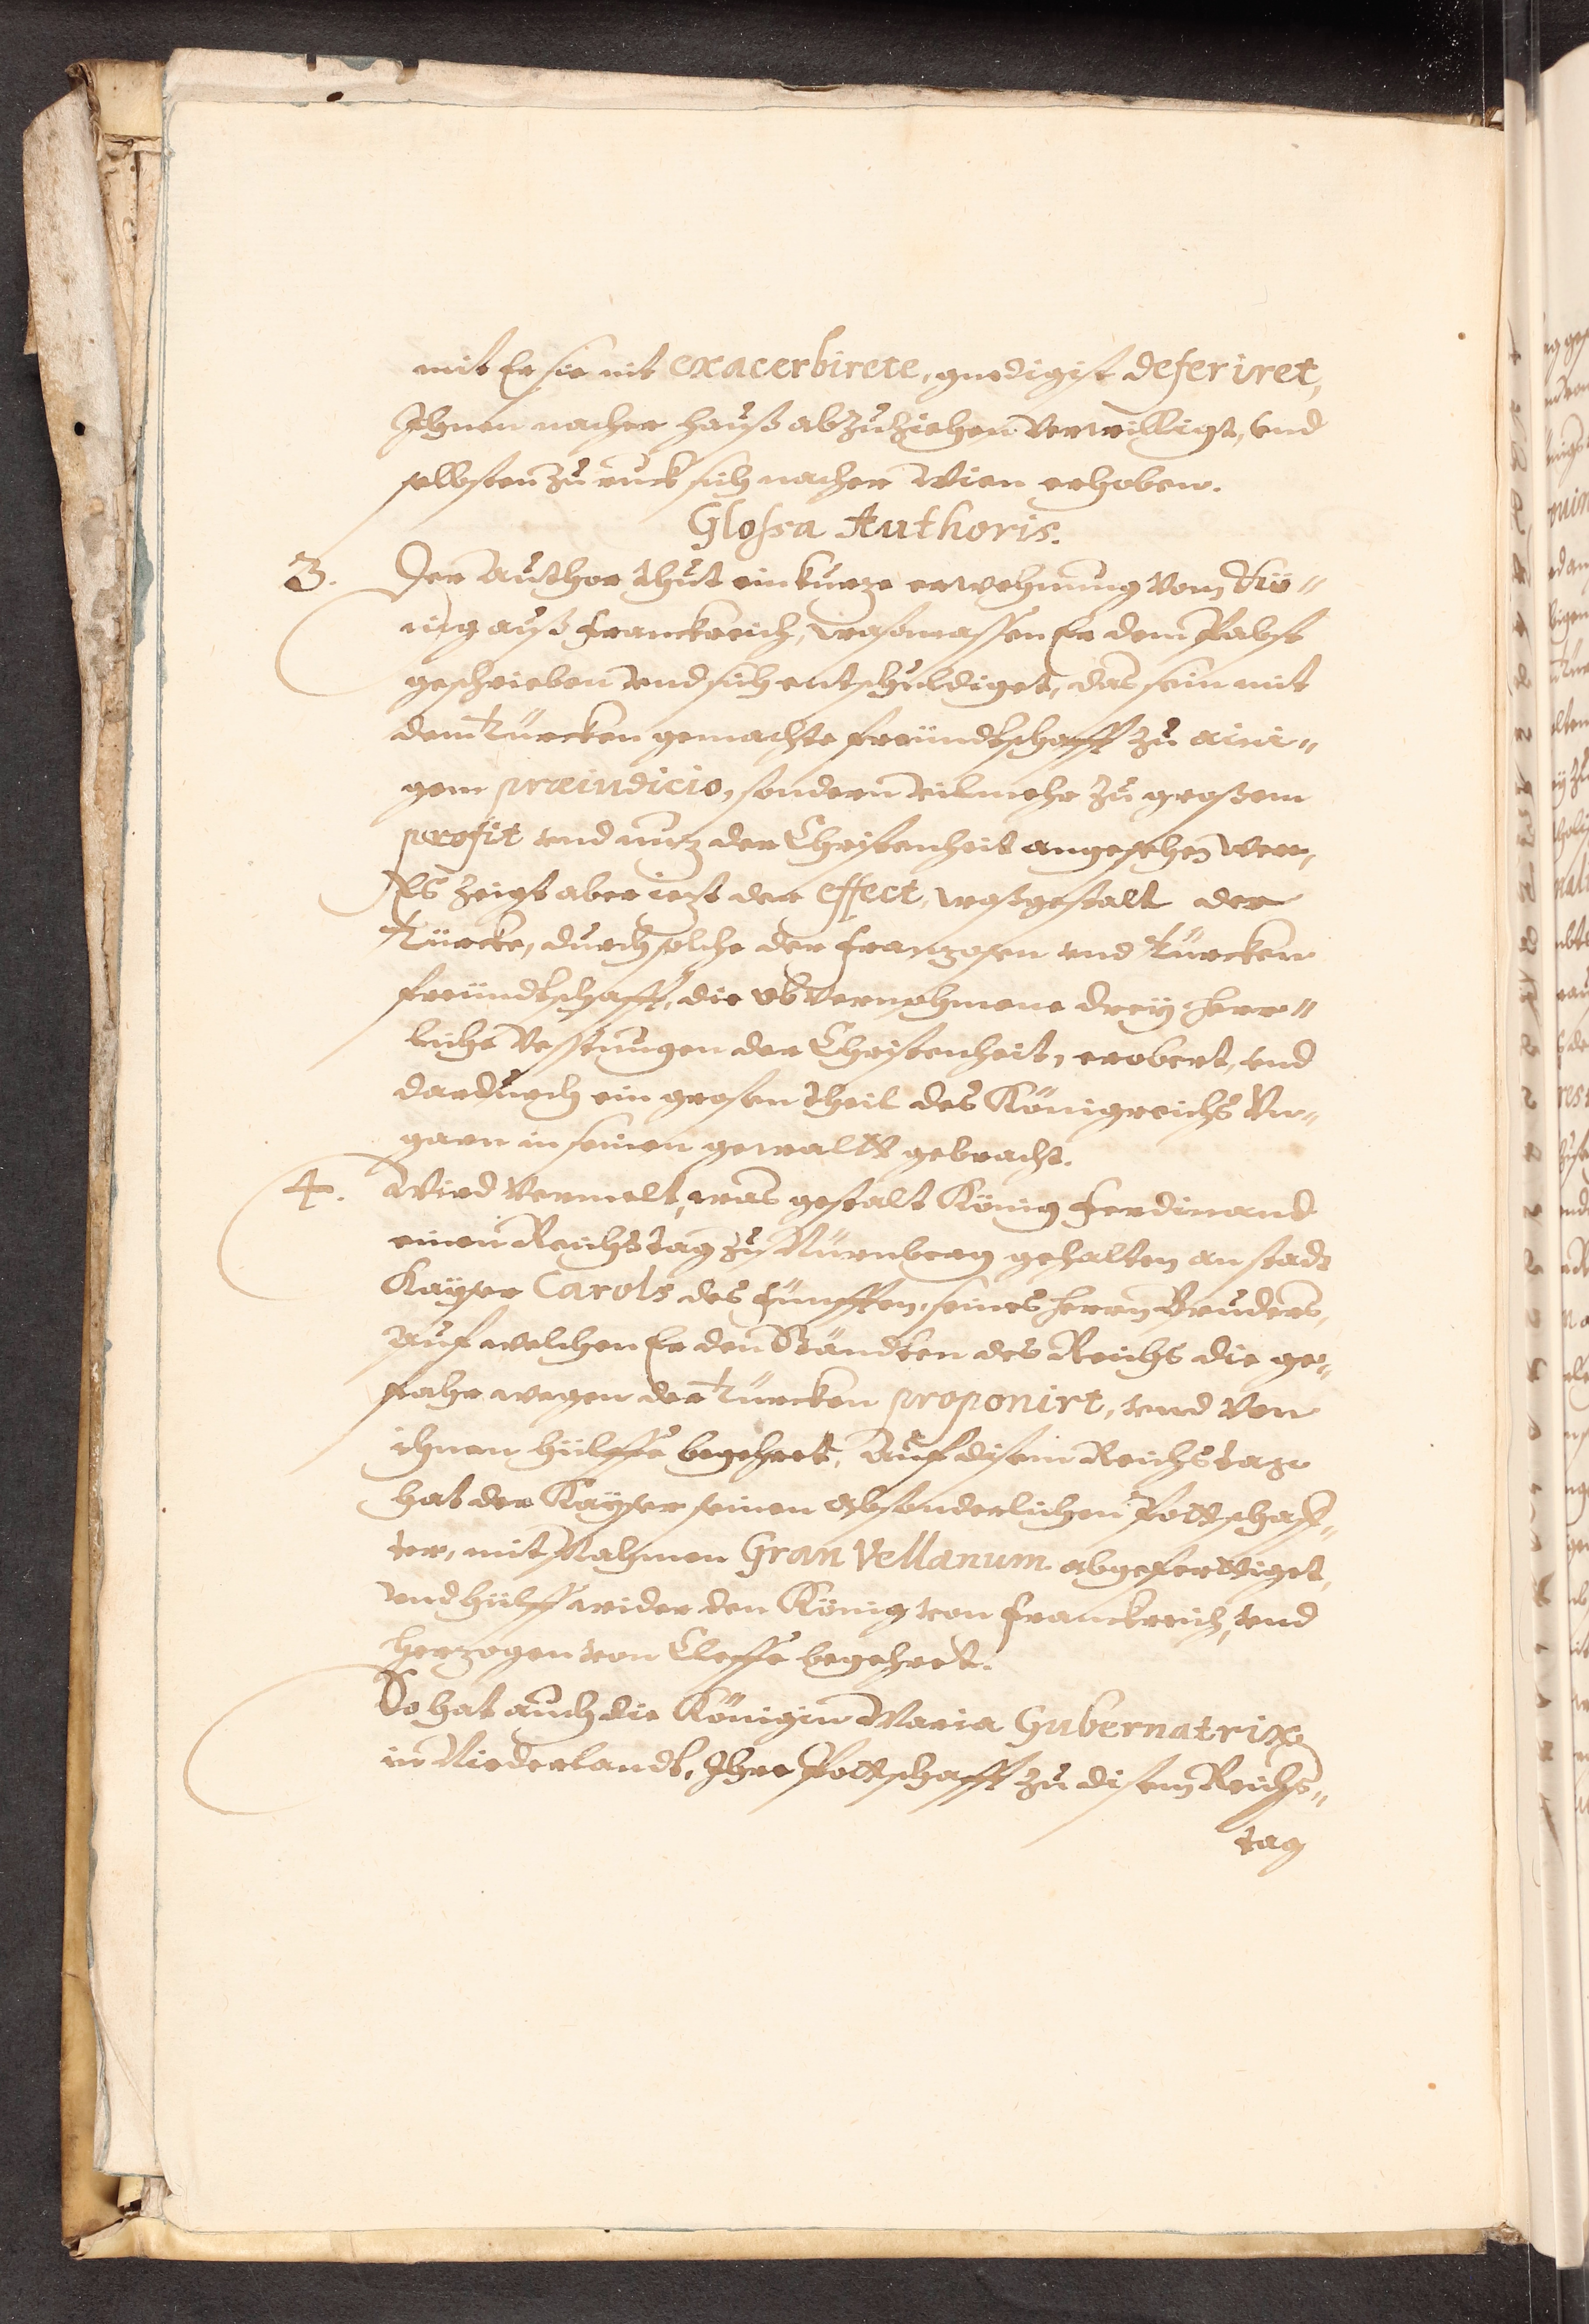 mit Er sie nit exacerbirete, gnedigist deferiret,
Ihnen nacher hauß abzuziehen verwilligt, vnd
selbsten zuruck sich nacher Wien erhoben.
Glossa Authoris.
3. Der Author thut ein kurze erwehnung vom Kö„
nig auß Franckreich, wasmassen Er dem Pabst
geschrieben vnd sich entschuldiget, das sein mit
dem Türcken gemachte freündtschafft zu aini„
gem præiudicio, sondern vilmehr zu großem
profit vnd nuz der Christenheit angesehen wer,
Es zeigt aber iezt der effect, waßgestalt der
Türcke, durch solche der Franzosen vnd Türcken
freündtschafft, die obvernohmene drey herr„
liche Vesstungen der Christenheit, erobert, vnd
dardurch ein grosen theil des Königreichs Vn„
garn in seinen gewaltt gebracht.
4. Wird vermelt, was gestalt König Ferdinand
einen Reichstag zu Nürnberg gehalten an stadt
Kayser Carols des Fünfften, seines herrn Bruders,
Auf welchen Er den Ständten des Reichs die ge„
fahr wegen der Türcken proponirt, vnd von
ihnen hülffe begehret, Auf disem Reichstage
hat der Kayser seinen absonderlichen Pottschaff„
ter, mit Nahmen Gran Vellanum abgeferttiget,
vnd hülff wider den König von Franckreich, vnd
Herzogen von Cleffe begehrt.
So hat auch die Königin Maria Gubernatrix
in Niederlandt, Ihre Pottschafft zu disem Reichs„
tag